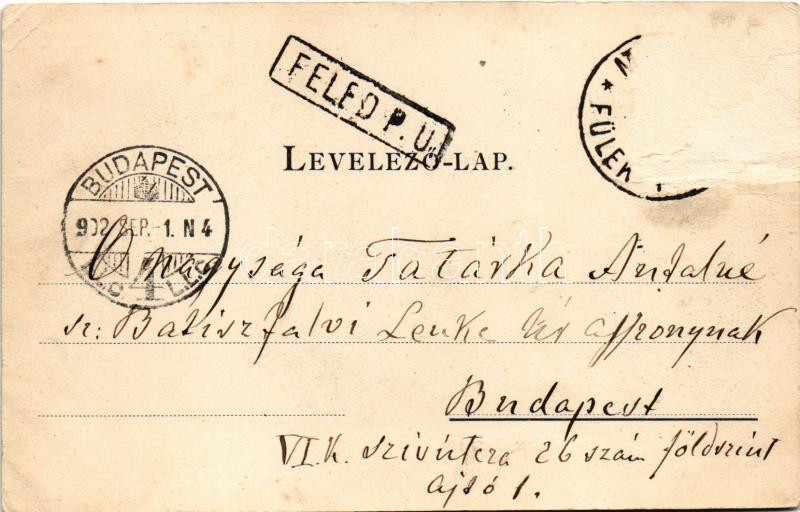 FELED P. U.
FÜLEK
LEVELEZŐ-LAP.
BUDAPEST
902 SEP. -1. N 4
4
Ő nagysága Tatárka Antalné
sz: Batiszfalvi Lenke úr asszonynak
Budapest
VI.k. szivutcza 26 szám földszint
ajtó 1.